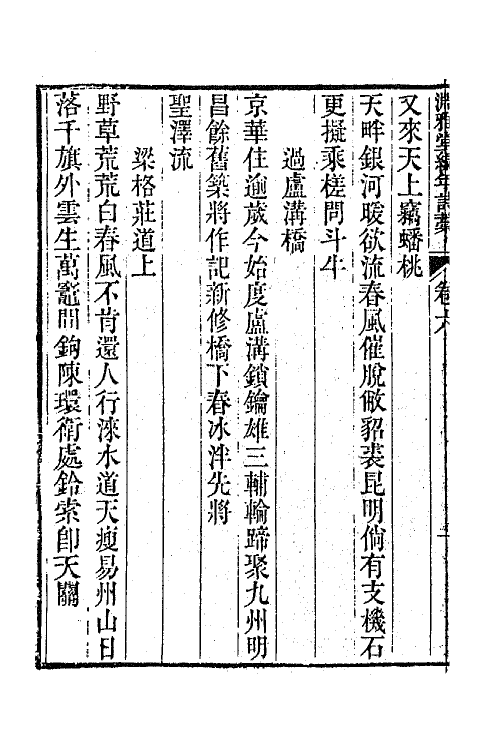 淵雅堂編年詩藁 卷六
又來天上竊蟠桃
天畔銀河暖欲流春風催脫敝貂裘昆明倘有支機石
更擬乘槎問斗牛
過盧溝橋
京華住逾歲今始度盧溝鎖鑰雄三輔輪蹄聚九州明
昌餘舊築將作記新修橋下春冰泮先將
聖澤流
梁格莊道上
野草荒荒白春風不肯還人行淶水道天瘦易州山日
落千旗外雲生萬竈間鉤陳環衛處鈴索卽天關